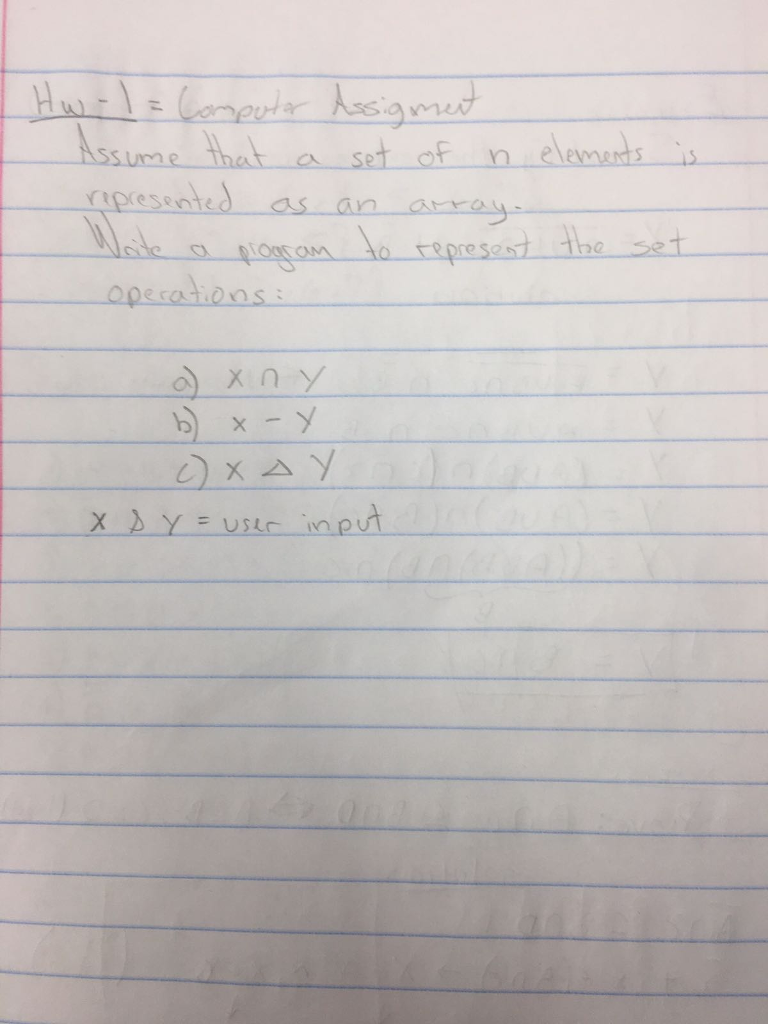 Hw-1 = Computer Assigment
Assume that a set of n elements is
represented as an array.
Write a program to represent the set
operations:
a) X ∩ Y
b) X - Y
c) X Δ Y
X & Y = user input